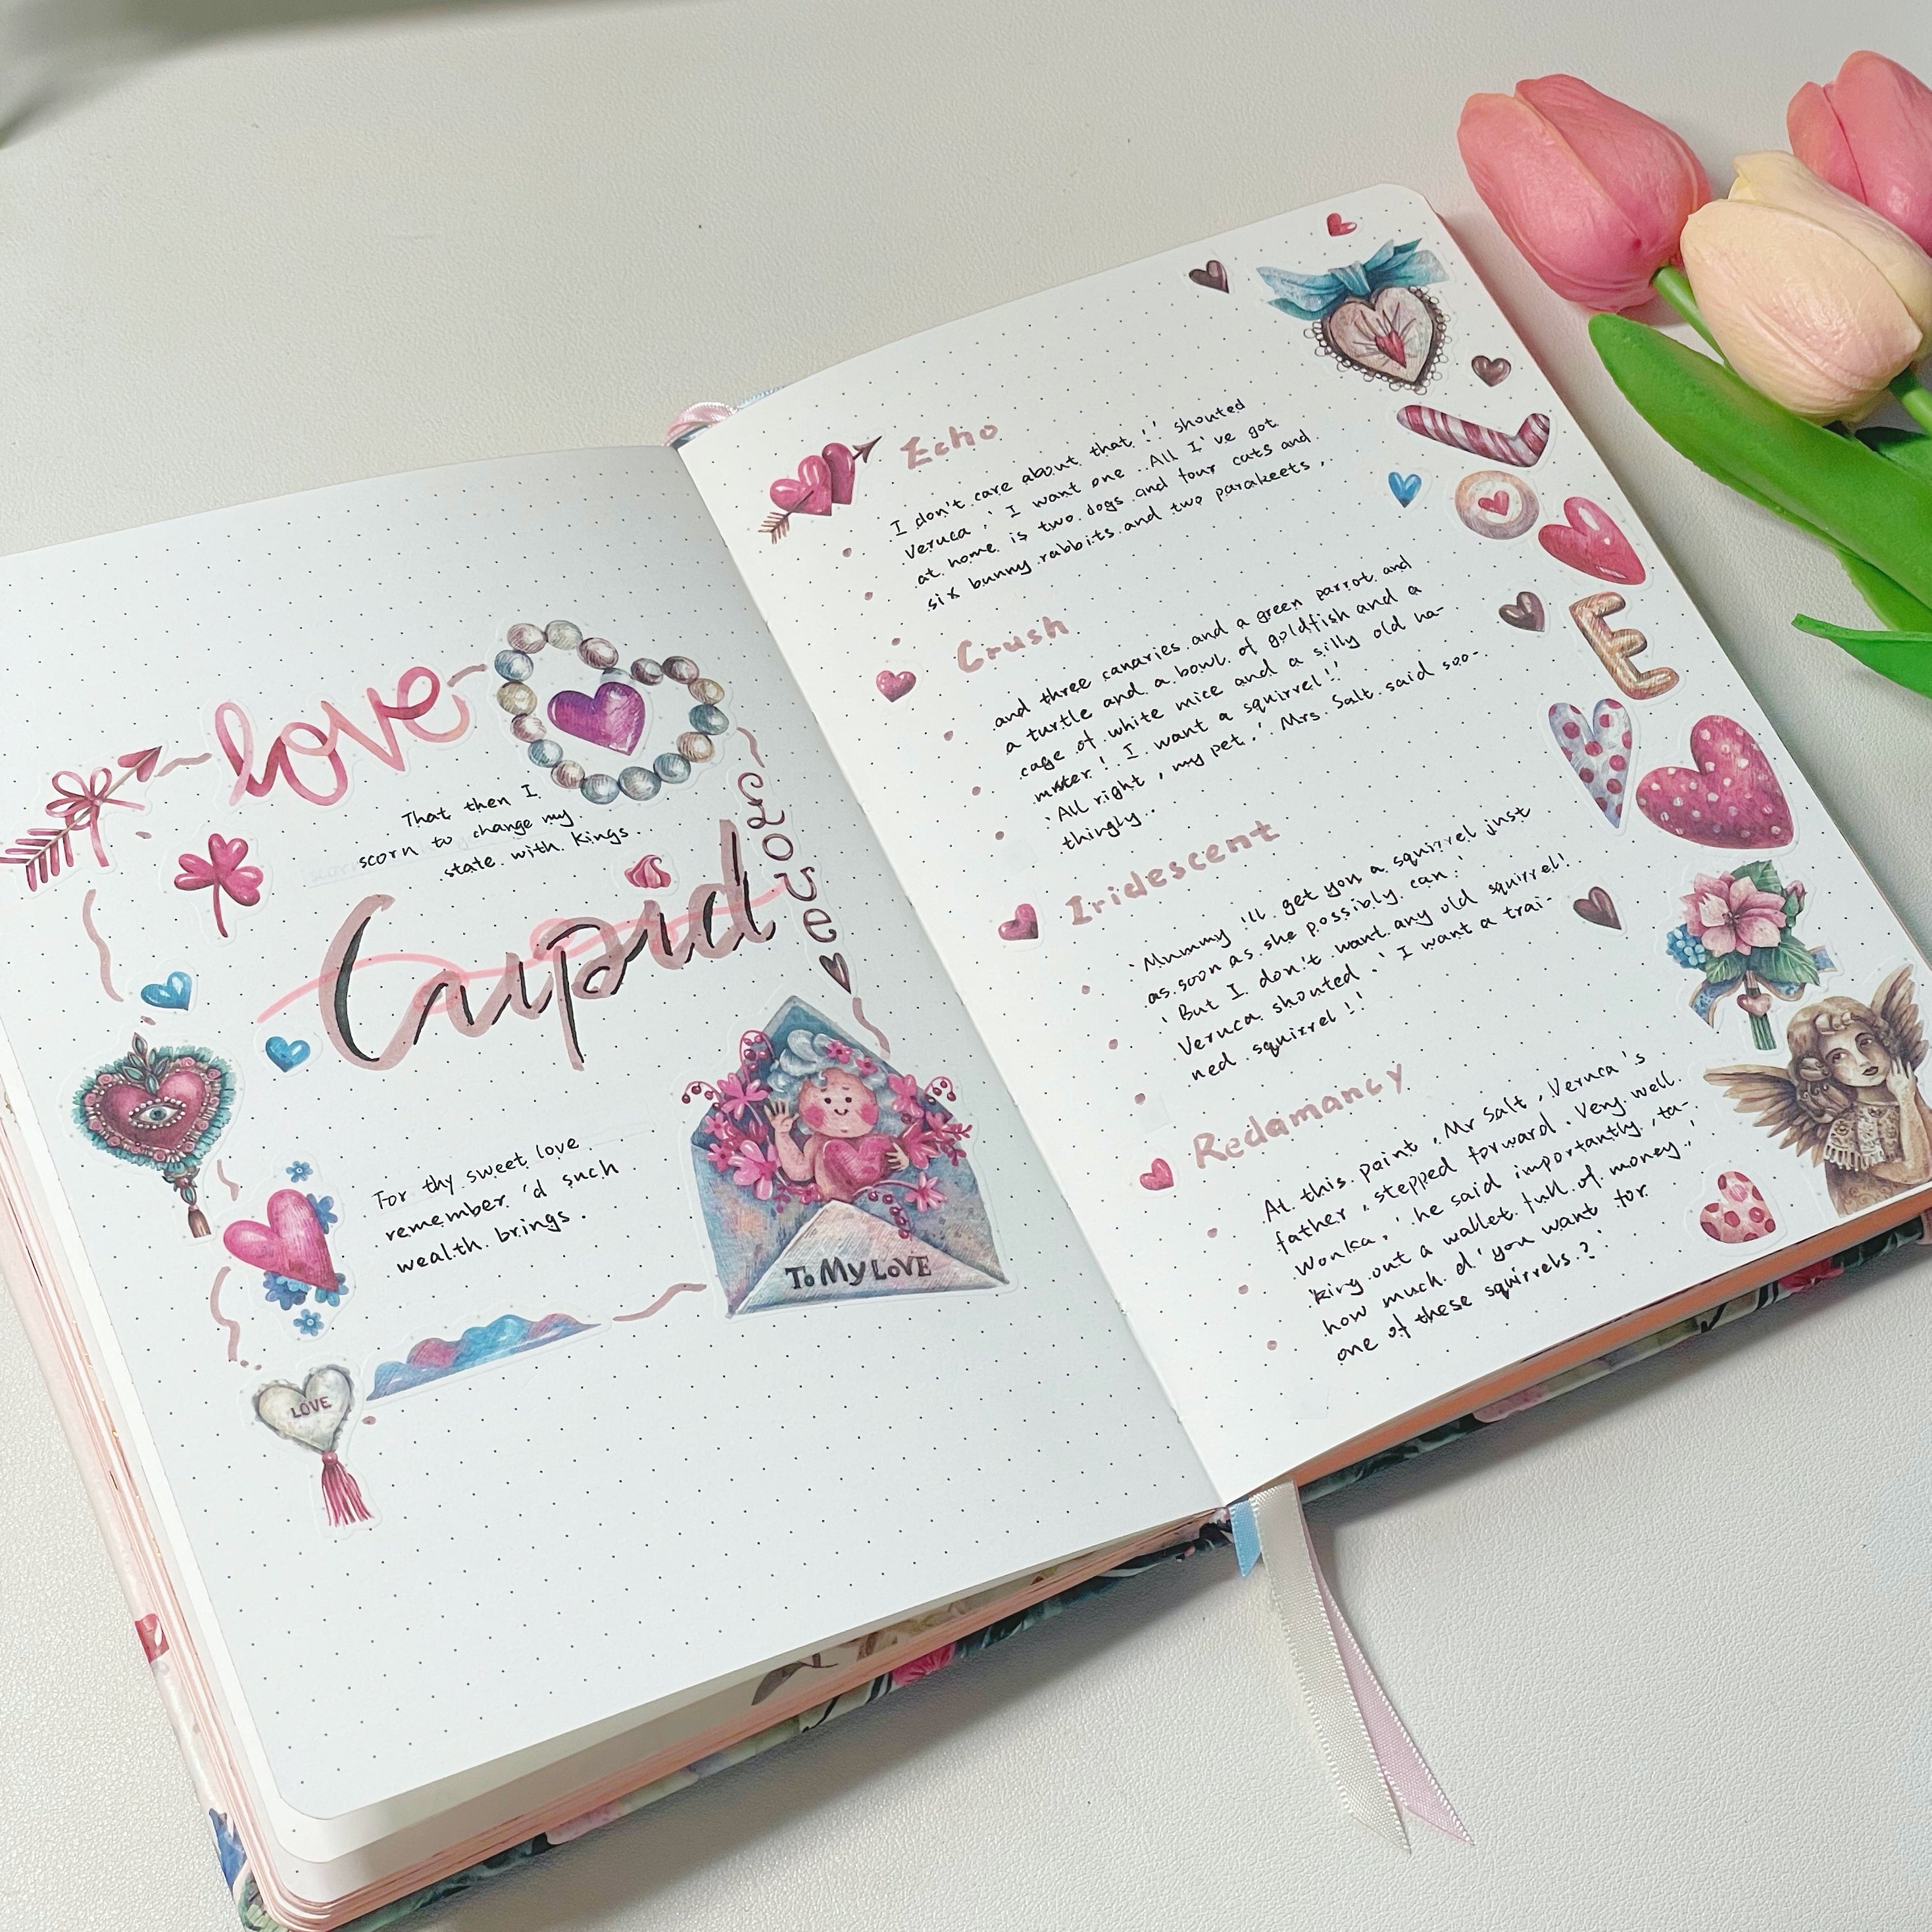 love
That then I
scorn to change my
state with kings.
Cupid
Love
For thy sweet love
remember'd such
wealth brings.
To My LoVE
LOVE
Echo
I don't care about that!' shouted
Veruca.' I want one. All I've got
at home is two dogs and four cats and
six bunny rabbits and two parakeets,
Crush
and three canaries and a green parrot and
a turtle and a bowl of goldfish and a
cage of white mice and a silly old ha-
mster! I want a squirrel!'
'All right, my pet.' Mrs. Salt said soo-
thingly.
Iridescent
'Mummy 'll get you a squirrel just
as soon as she possibly can.'
'But I don't want any old squirrel!
Veruca shouted.' I want a trai-
ned squirrel!'
Redamancy
At this point, Mr Salt, Veruca's
father, stepped forward. Very well.
Wonka,' he said importantly, ta-
king out a wallet full of money,'
how much d'you want for
one of these squirrels?'
L
O
V
E